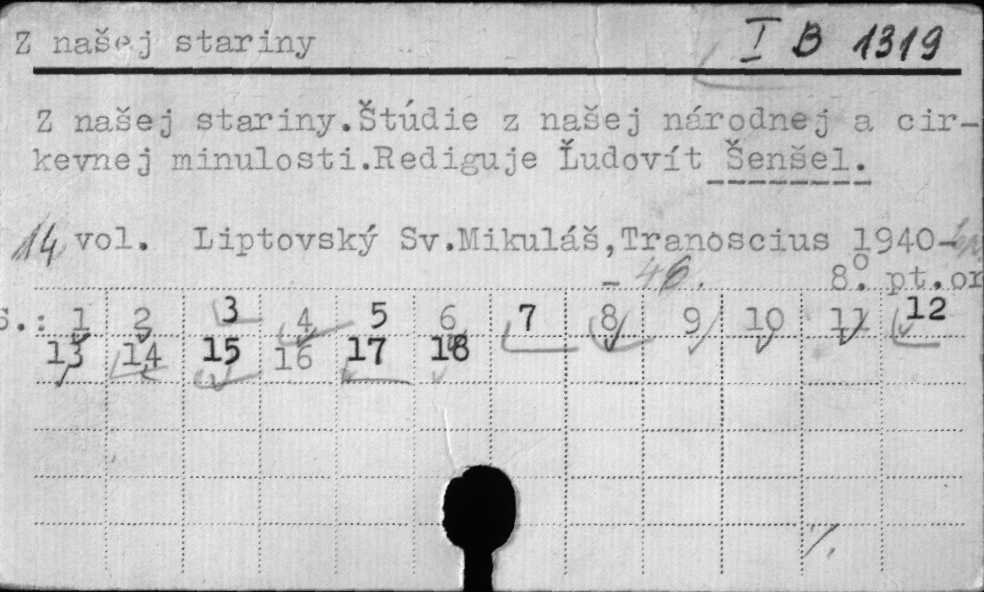 Z našej stariny I B 1319
Z našej stariny.Štúdie z našej národnej a cir-
kevnej minulosti.Rediguje Ľudovít Šenšel.
14 vol. Liptovský Sv.Mikuláš,Tranoscius 1940-
- 46. 8° pt.or
S.: 1 2 3 4 5 6 7 8 9 10 11 12
13 14 15 16 17 18